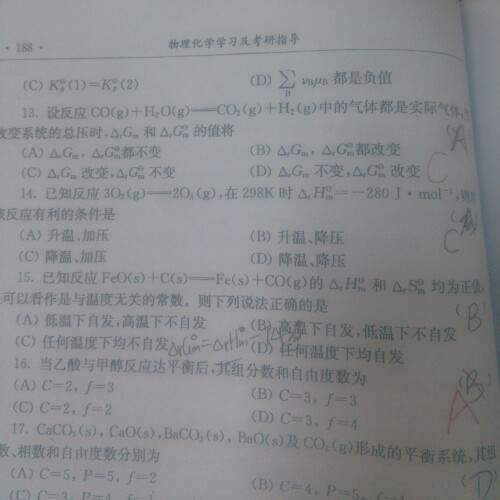 · 188 ·
物理化学学习及考研指导
(C) K_p^⊖(1)=K_p^⊖(2)
(D) ∑_B ν_Bμ_B 都是负值
13. 设反应 CO(g)+H₂O(g)══CO₂(g)+H₂(g)中的气体都是实际气体,
改变系统的总压时,Δ_rG_m 和 Δ_rG_m^⊖ 的值将
(A) Δ_rG_m, Δ_rG_m^⊖都不变
(B) Δ_rG_m, Δ_rG_m^⊖都改变
(C) Δ_rG_m 改变,Δ_rG_m^⊖ 不变
(D) Δ_rG_m 不变,Δ_rG_m^⊖ 改变
(A)
C
14. 已知反应 3O₂(g)══2O₃(g),在 298K 时 Δ_rH_m^⊖=-280 J·mol⁻¹,
该反应有利的条件是
(A) 升温、加压
(B) 升温、降压
(C) 降温、加压
(D) 降温、降压
C
15. 已知反应 FeO(s)+C(s)══Fe(s)+CO(g)的 Δ_rH_m^⊖ 和 Δ_rS_m^⊖ 均为正值,
可以看作是与温度无关的常数。则下列说法正确的是
(A) 低温下自发,高温下不自发
(B) 高温下自发,低温下不自发
(C) 任何温度下均不自发
(D) 任何温度下均自发
(B)
16. 当乙酸与甲醇反应达平衡后,其组分数和自由度数为
(A) C=2, f=3
(B) C=3, f=3
(C) C=2, f=2
(D) C=3, f=4
(B)
A
17. CaCO₃(s), CaO(s),BaCO₃(s), BaO(s)及 CO₂(g)形成的平衡系统,其组
数、相数和自由度数分别为
(A) C=5, P=5, f=2
(B) C=4, P=
(D)
(C) C=3, P=4,